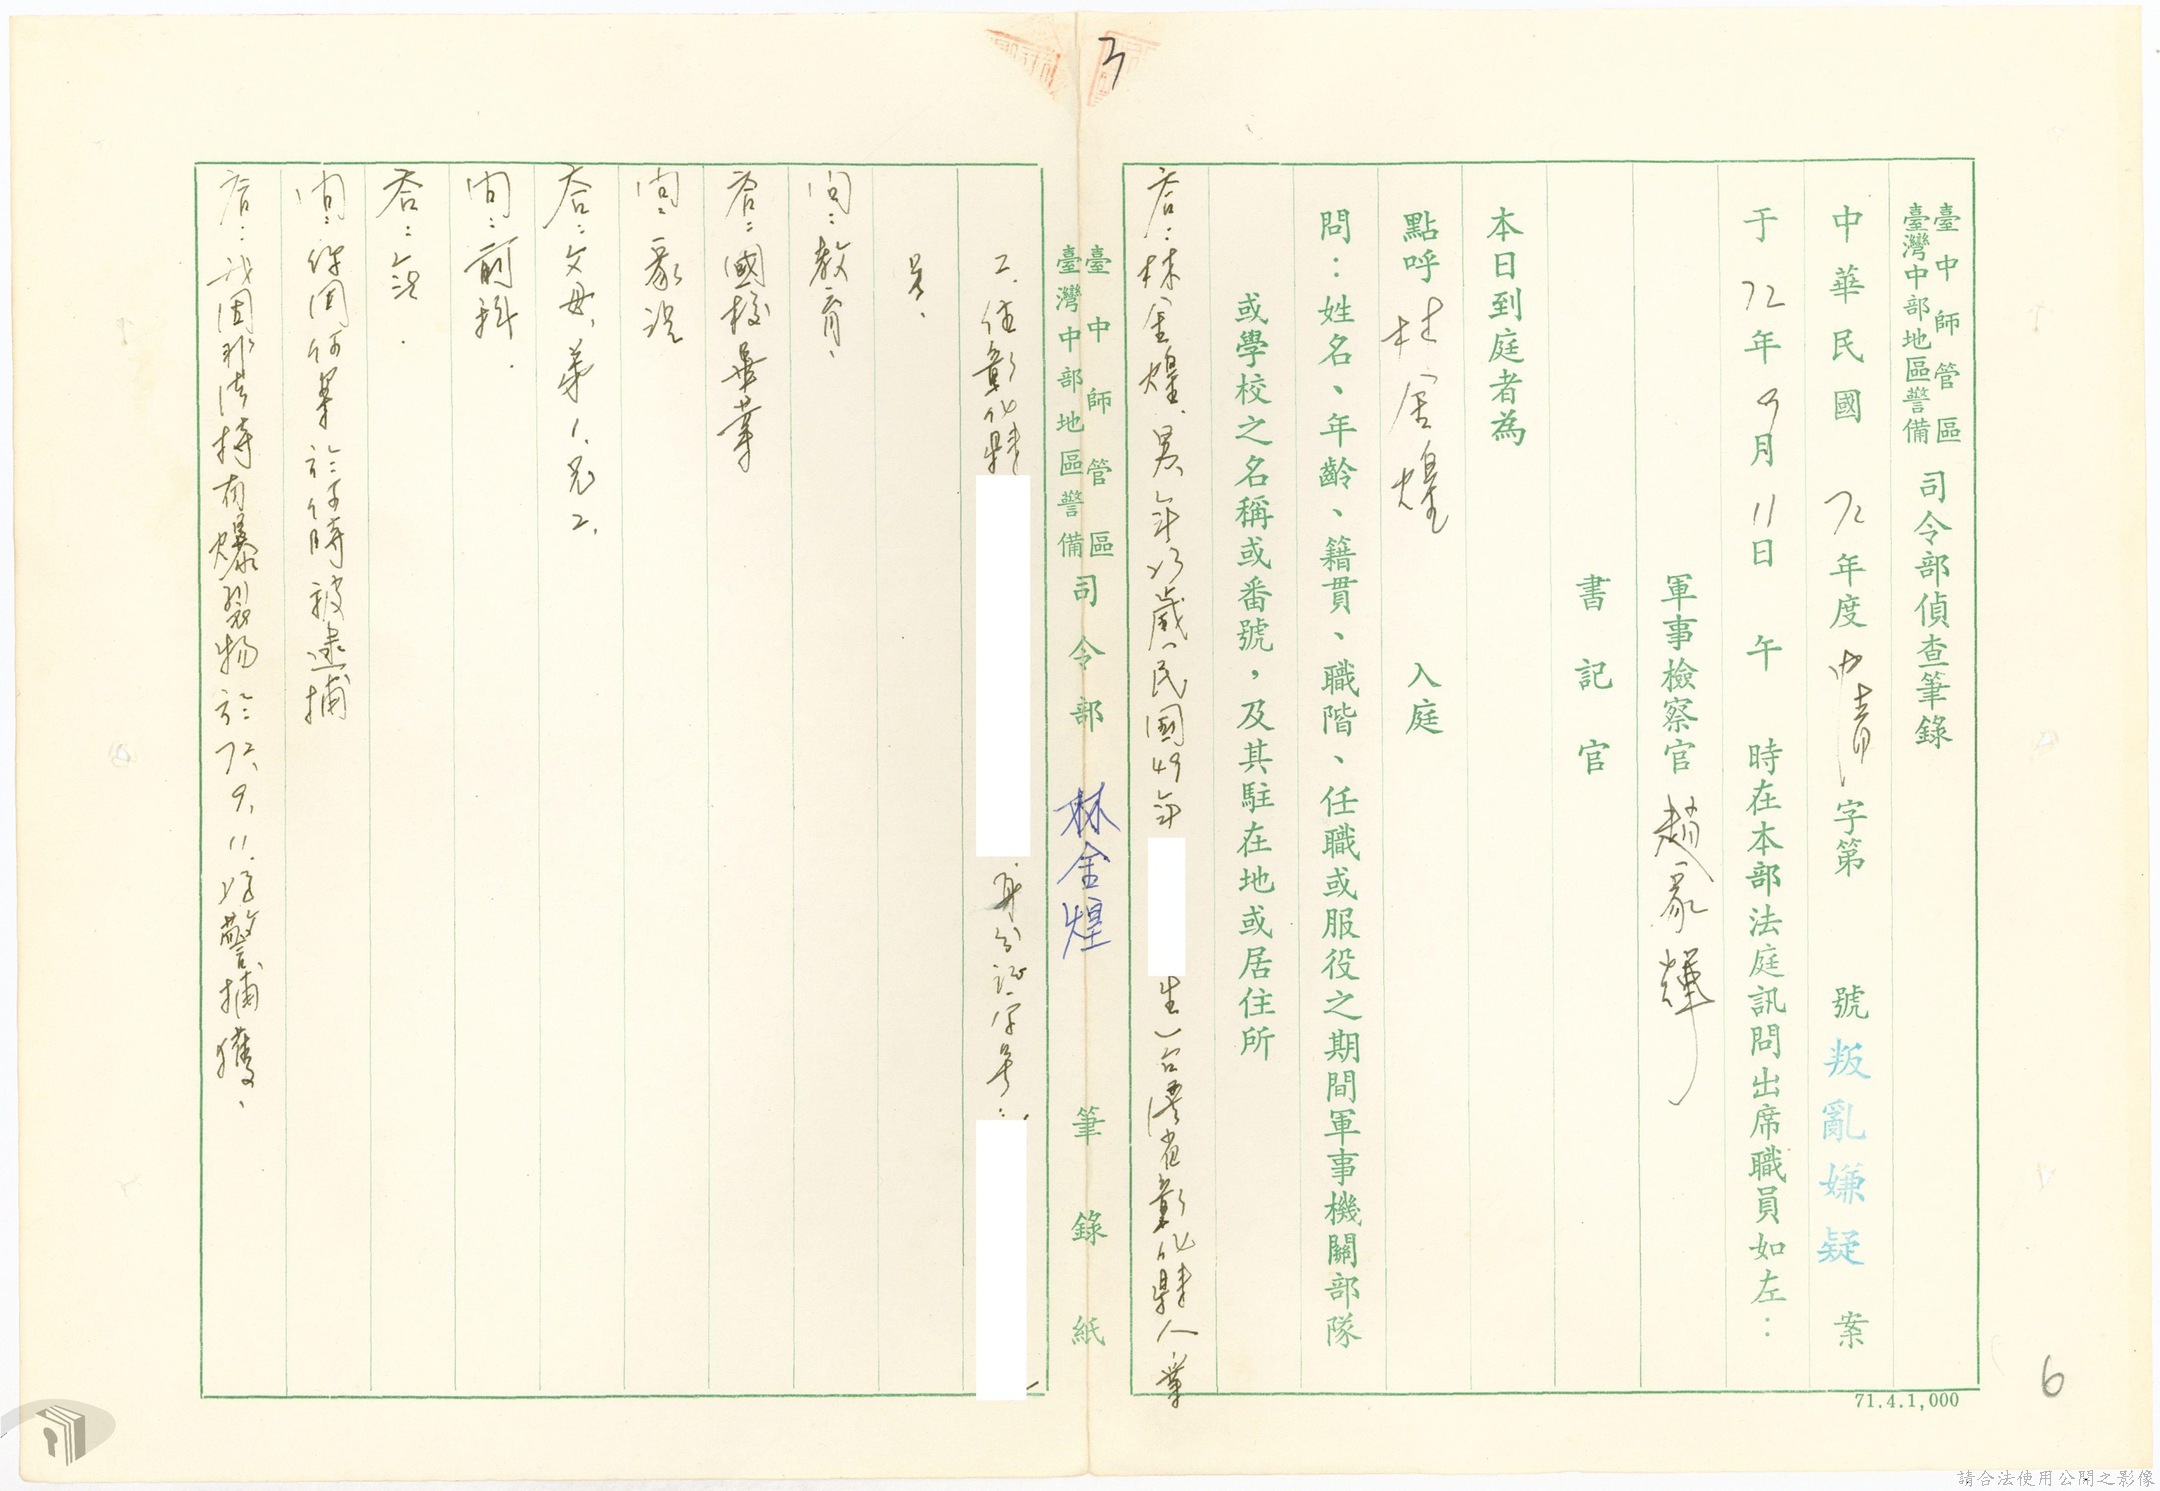 3
臺中師管區
臺灣中部地區警備
司令部偵查筆錄
中華民國72年度 字第 號叛亂嫌疑 案
于72年9月11日 午 時在本部法庭訊問出席職員如左:
軍事檢察官 趙家輝
書記官
本日到庭者為
點呼 林金煌 入庭
問:姓名、年齡、籍貫、職階、任職或服役之期間軍事機關部隊
或學校之名稱或番號,及其駐在地或居住所
答:林金煌、男、年23歲(民國49年 生)台灣省彰化縣人業
臺中師管區
臺灣中部地區警備
司令部 林金煌 筆錄紙
工.住彰化縣 身分証字号:
另、
問:教育、
答:國校畢業
問:家況
答:父母、弟1、兄2.
問:前科.
答:無.
問:你因何案於何時被逮捕
答:我因非法持有爆裂物於72.9.11.經警捕獲、
71.4.1,000
6
請合法使用公開之影像